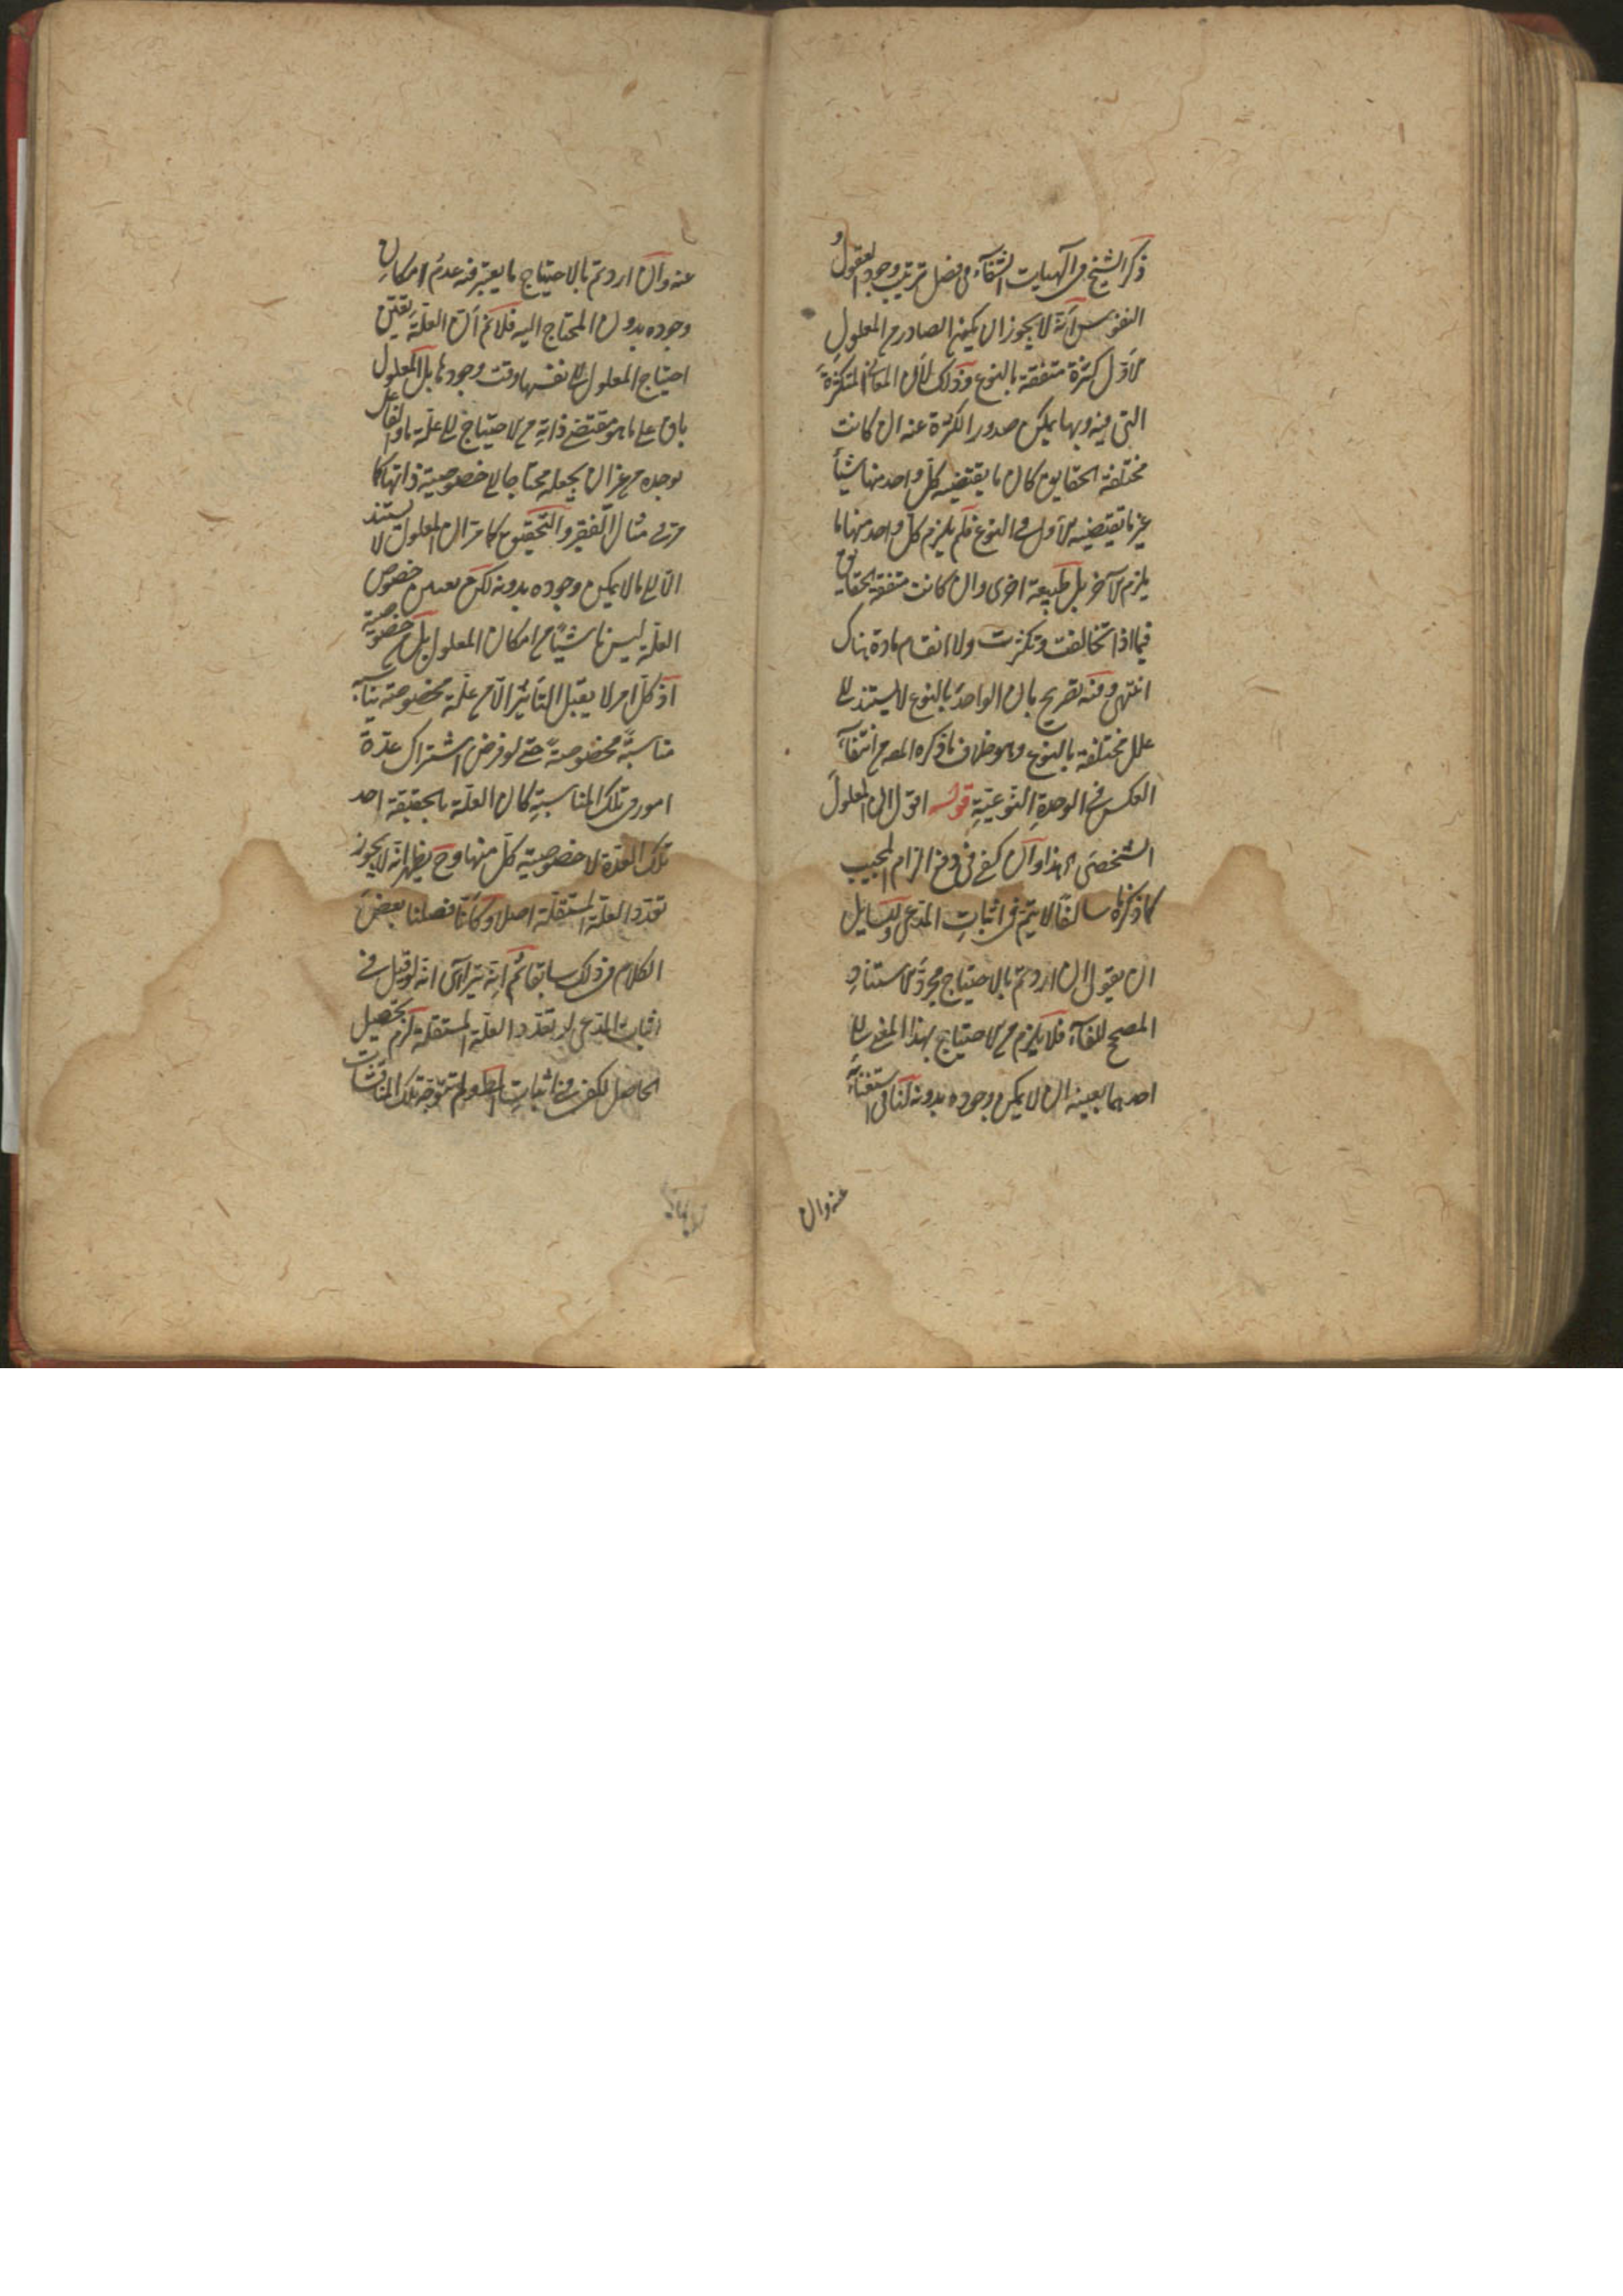 ذكر الشيخ في آلهيات الشفاء في فصل ترتيب وجود العقول و
النفوس أنّه لا يجوز ان يكون الصادر من المعلول
الاوّل كثرة متفقة بالنوع وذلك لأن المعاني المتكثرة
التي فيه وبها يمكن صدور الكثرة عنه ان كانت
مختلفة الحقايق كان ما يقتضيه كلّ واحد منها شيئاً
غير ما يقتضيه الاول في النوع فلم يلزم كل واحد منها ما
يلزم الآخر بل طبيعة اخرى وان كانت متفقة الحقايق
فبماذا تخالفت وتكثرت ولا انقسام مادة هناك
انتهى وفيه تصريح بان الواحد بالنوع لا يستند الى
علل مختلفة بالنوع وهو خلاف ما ذكره المص من انتفاء
العكس في الوحدة النوعيّة قوله اقول ان المعلول
الشخصي اه هذا وان كفى في دفع الزام المجيب
كما ذكرنا سالفًا لا يتم في اثبات المدعى وللسايل
ان يقول ان اردتم بالاحتياج مجرد الاستناد
المصحح للفاء فلا يلزم من الاحتياج بهذا المعنى الى
احدهما بعينه ان لا يمكن وجوده بدونه لينافي استغناءه
عنه وان
عنه وآن اردتم بالاحتياج ما يعتبر فيه عدم امكان
وجوده بدون المحتاج اليه فلا نم أن العلّة يقتضي
احتياج المعلول الى نفسها وقت وجودها بل المعلول
باق على ما هو مقتضى ذاته من الاحتياج الى علّة ما والفاعل
يوجده من غير ان يجعله محتاجا الى خصوصية ذاتها كما
مرّ في مثال الفقير والتحقيق كما مر ان المعلول لا يستند
الّا الى ما لا يمكن وجوده بدونه لكن تعيين خصوص
العلّة ليس ناشيًا من امكان المعلول بل من خصوصية
اذ كلّ امر لا يقبل التاثير الّا من علّة مخصوصة يناسبه
مناسبةً مخصوصةً حتى لو فرض اشتراك عدة
امور في تلك المناسبة كان العلّة بالحقيقة احد
تلك العدّة لا خصوصية كلّ منها وح يظهر انه لا يجوز
تعدد العلّة المستقلّة اصلا وكأنّا فصلنا بعض
الكلام في ذلك سابقا ثم انه يتراآى انه لو قيل في
اثبات المدعى لو تعدد العلّة المستقلة لزم تحصيل
الحاصل لكفى في اثبات المط ولم تتوجه تلك المناقشات